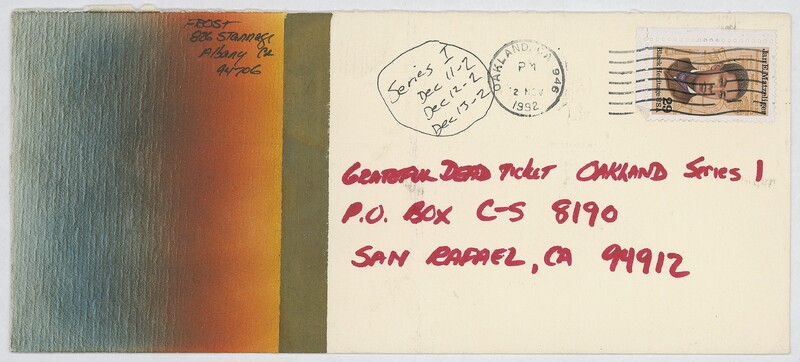 FROST
826 Stannage
Albany Ca
94706
Series I
Dec 11-2
Dec 12-2
Dec 13-2
OAKLAND, CA 946
PM
2 NOV
1992
Jan E. Matzeliger
Black Heritage USA
29
GRATEFUL DEAD TICKET OAKLAND Series 1
P.O. BOX C-S 8190
SAN RAFAEL, CA 94912